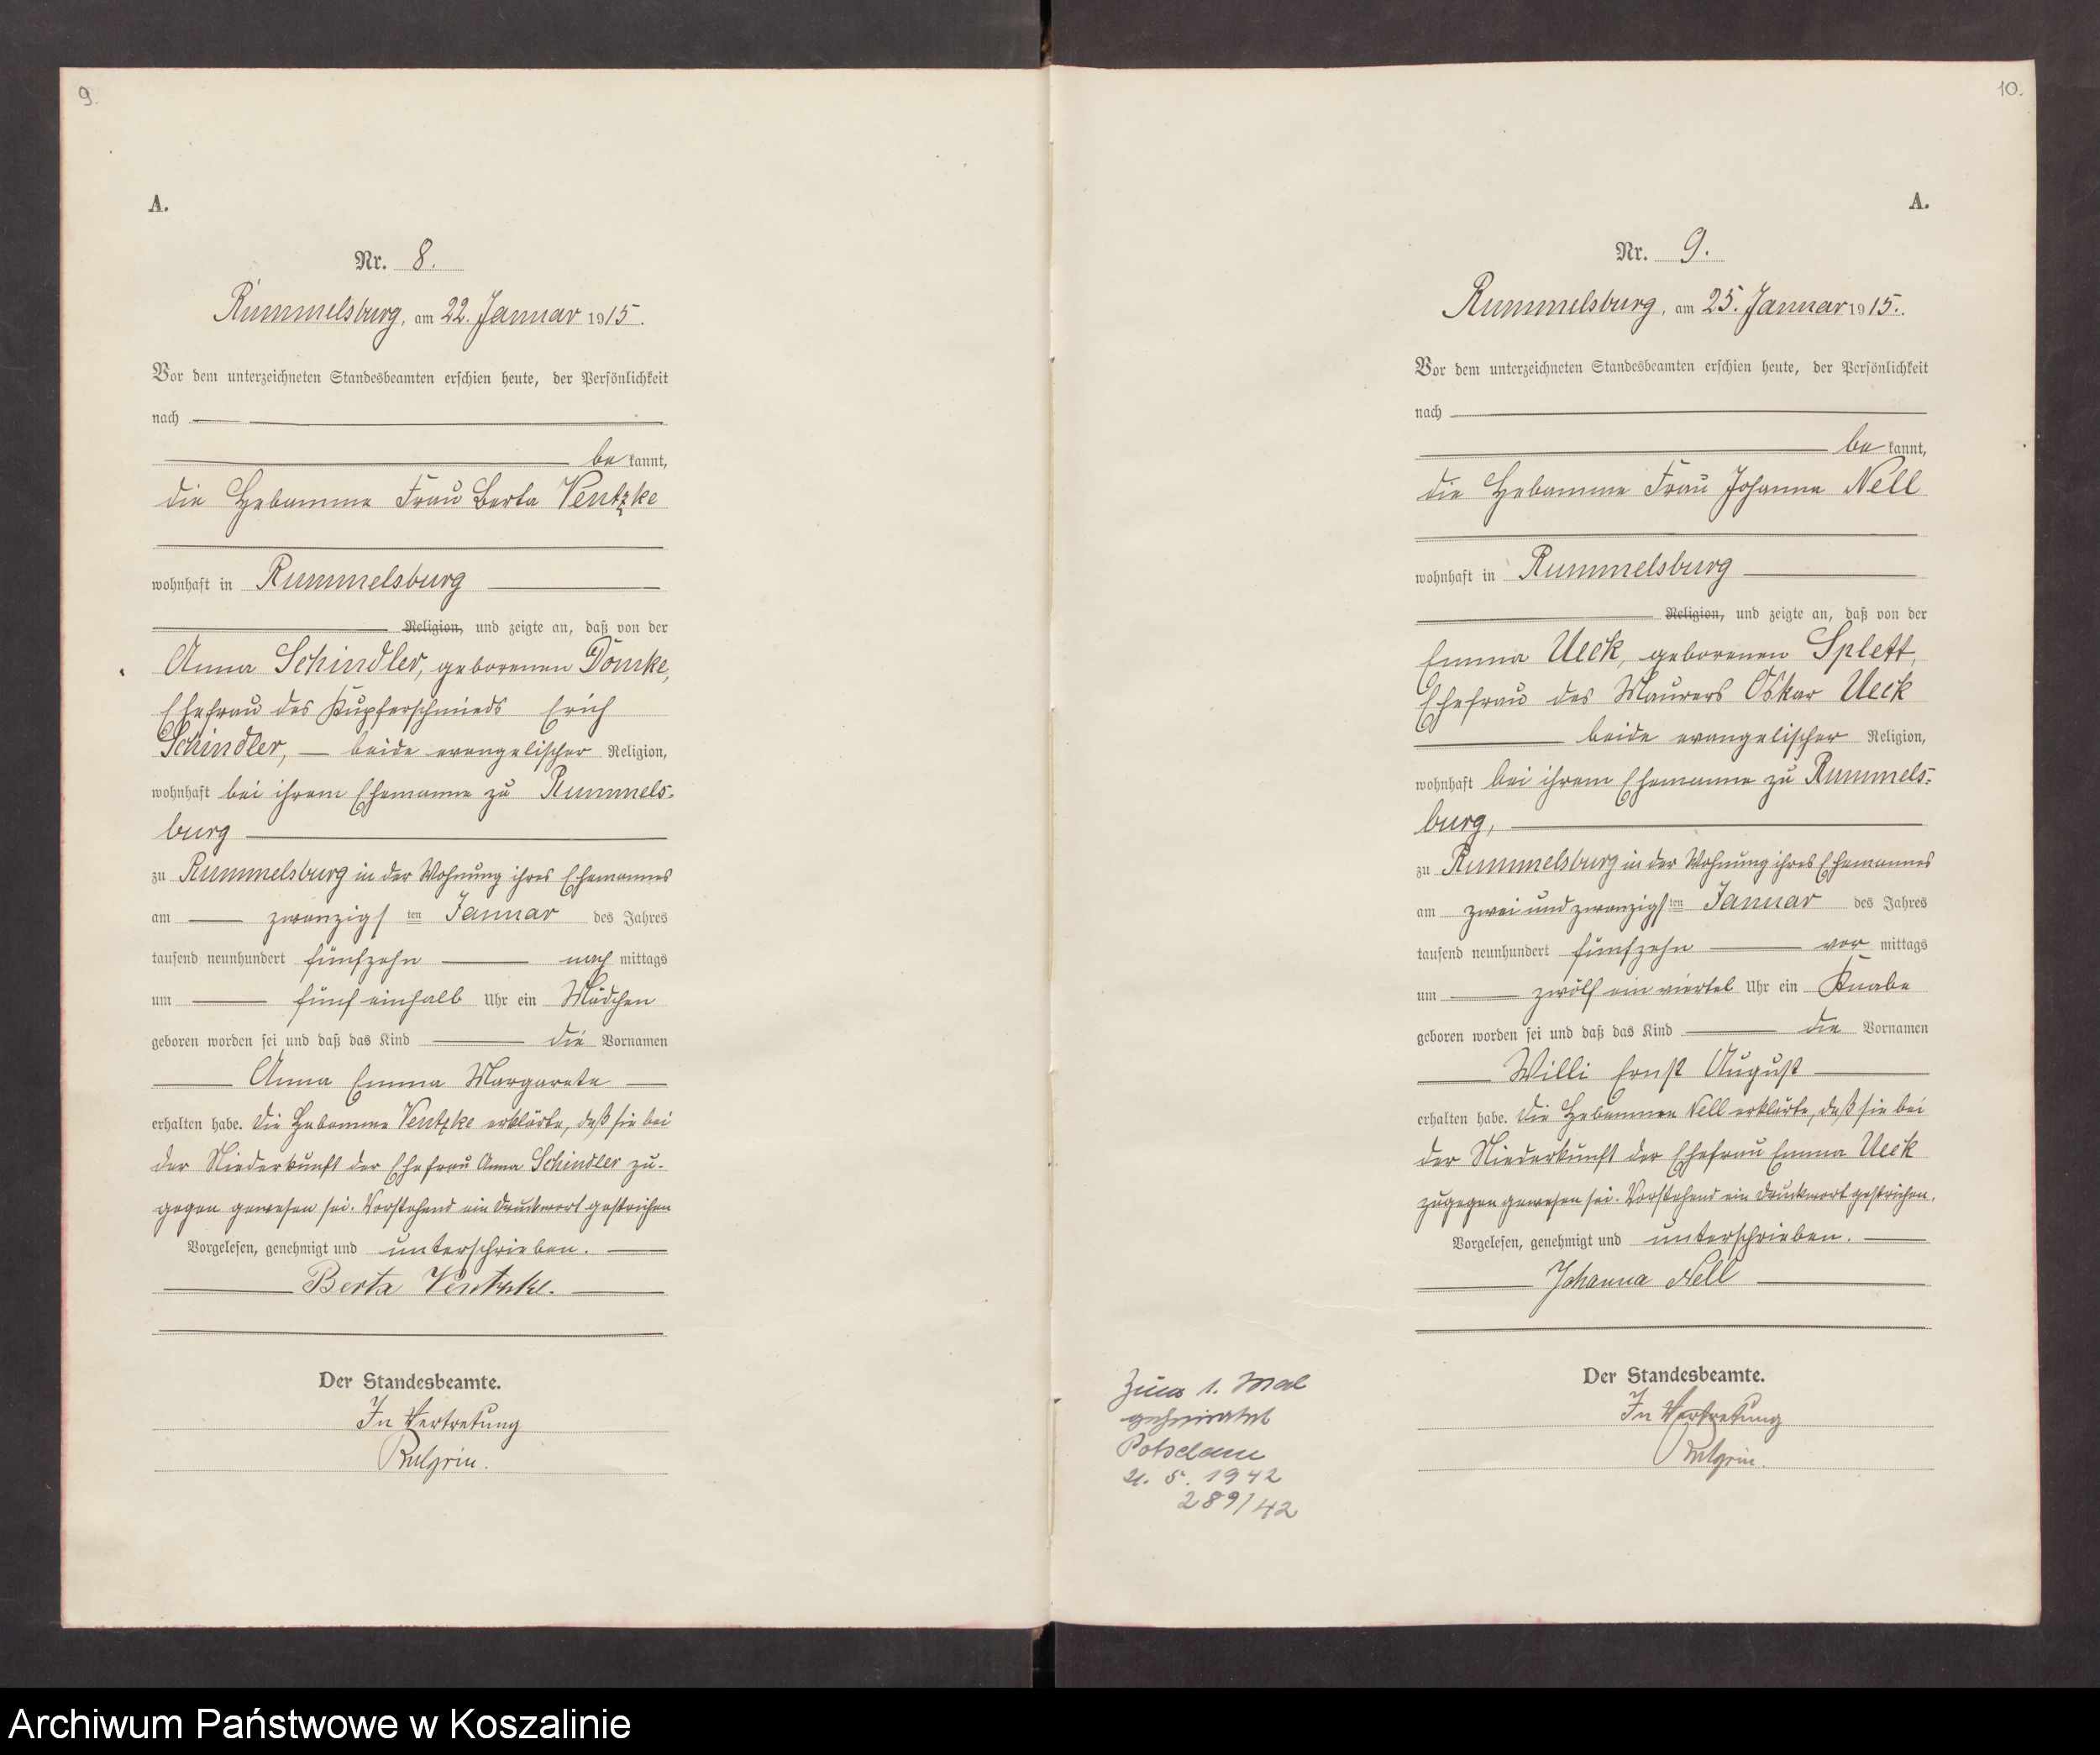 9.
A.
Nr. 8.
Rummelsburg, am 22. Januar 1915.
Vor dem unterzeichneten Standesbeamten erschien heute, der Persönlichkeit
nach
bekannt,
die Hebamme Frau Berta Ventzke
wohnhaft in Rummelsburg
Religion, und zeigte an, daß von der
Anna Schindler, geborenen Domke,
Ehefrau des Kupferschmieds Erich
Schindler, — beide evangelischer Religion,
wohnhaft bei ihrem Ehemanne zu Rummels-
burg
zu Rummelsburg in der Wohnung ihres Ehemannes
am zwanzigsten Januar des Jahres
tausend neunhundert fünfzehn nachmittags
um fünf einhalb Uhr ein Mädchen
geboren worden sei und daß das Kind die Vornamen
Anna Emma Margarete
erhalten habe. Die Hebamme Ventzke erklärte, daß sie bei
der Niederkunft der Ehefrau Anna Schindler zu-
gegen gewesen sei. Vorstehend ein Druckwort gestrichen
Vorgelesen, genehmigt und unterschrieben.
Berta Ventzke.
Der Standesbeamte.
In Vertretung
10.
A.
Nr. 9.
Rummelsburg, am 25. Januar 1915.
Vor dem unterzeichneten Standesbeamten erschien heute, der Persönlichkeit
nach
bekannt,
die Hebamme Frau Johanna Nell
wohnhaft in Rummelsburg
Religion, und zeigte an, daß von der
Emma Ueck, geborenen Splett,
Ehefrau des Maurers Oskar Ueck
beide evangelischer Religion,
wohnhaft bei ihrem Ehemanne zu Rummels-
burg,
zu Rummelsburg in der Wohnung ihres Ehemannes
am zwei und zwanzigsten Januar des Jahres
tausend neunhundert fünfzehn vormittags
um zwölf ein viertel Uhr ein Knabe
geboren worden sei und daß das Kind die Vornamen
Willi Ernst August
erhalten habe. Die Hebamme Nell erklärte, daß sie bei
der Niederkunft der Ehefrau Emma Ueck
zugegen gewesen sei. Vorstehend ein Druckwort gestrichen.
Vorgelesen, genehmigt und unterschrieben.
Johanna Nell
Der Standesbeamte.
In Vertretung
Zum 1. Mal
geheiratet
Potsdam
21. 5. 1942
289/42
Archiwum Państwowe w Koszalinie